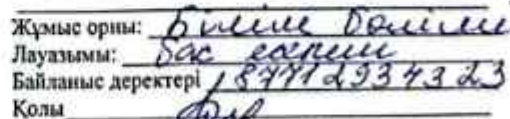 Жұмыс орны: Білім бөлімі
Лауазымы: бас маман
Байланыс деректері 87712934323
Қолы